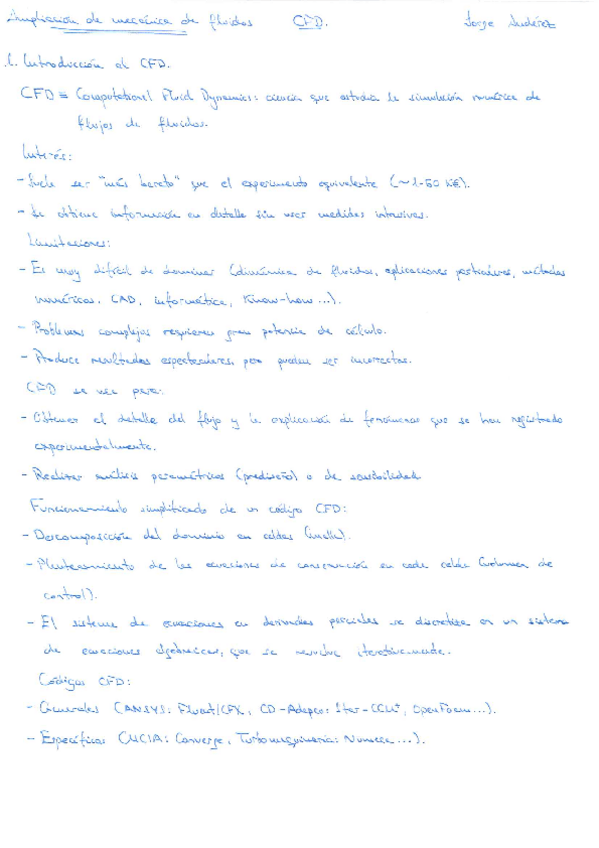 Ampliación de mecánica de fluidos CFD. Jorge Judérez
1. Introducción al CFD.
CFD ≡ Computational Fluid Dynamics: ciencia que estudia la simulación numérica de
flujos de fluidos.
Interés:
- Suele ser "más barato" que el experimento equivalente (~1-50 k€).
- Se obtiene información en detalle sin usar medidas intrusivas.
Limitaciones:
- Es muy difícil de dominar (dinámica de fluidos, aplicaciones particulares, métodos
numéricos, CAD, informática, Know-how...).
- Problemas complejos requieren gran potencia de cálculo.
- Produce resultados espectaculares, pero pueden ser incorrectos.
CFD se usa para:
- Obtener el detalle del flujo y la explicación de fenómenos que se han registrado
experimentalmente.
- Realizar análisis paramétricos (prediseño) o de sensibilidad
Funcionamiento simplificado de un código CFD:
- Descomposición del dominio en celdas (malla).
- Planteamiento de las ecuaciones de conservación en cada celda (volumen de
control).
- El sistema de ecuaciones en derivadas parciales se discretiza en un sistema
de ecuaciones algebraicas, que se resuelve iterativamente.
Códigos CFD:
- Generales (ANSYS: Fluent/CFX, CD-Adapco: Star-CCM+, OpenFoam...).
- Específicos (MCIA: Converge, Turbomaquinaria: Numeca...).